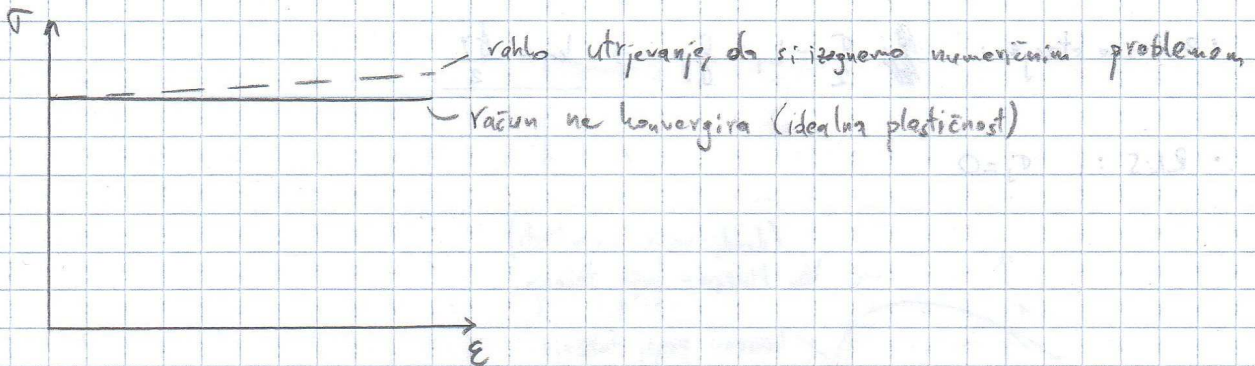 σ
rahlo utrjevanje, da si izognemo numeričnim problemom
račun ne konvergira (idealna plastičnost)
ε